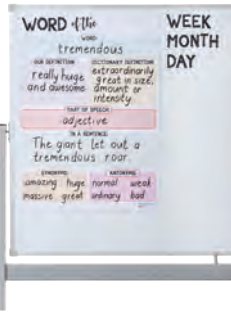 WORD of the
WEEK
MONTH
DAY
WORD
tremendous
OUR DEFINITION
really huge
and awesome
DICTIONARY DEFINITION
extraordinarily
great in size,
amount or
intensity
PART OF SPEECH
adjective
IN A SENTENCE
The giant let out a
tremendous roar.
SYNONYMS
amazing huge
massive great
ANTONYMS
normal weak
ordinary bad